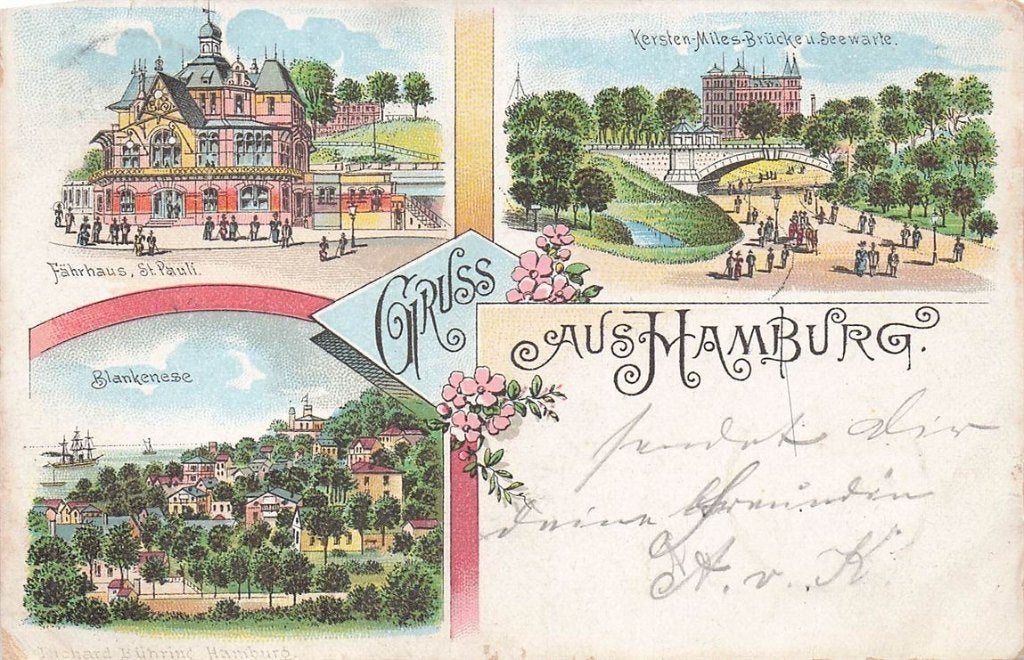 Kersten-Miles-Brücke u. Seewarte.
Fährhaus, St. Pauli.
GRUSS
AUS HAMBURG.
Blankenese
sendet Dir
deine Freundin
A. v. K.
Richard Bühring Hamburg.